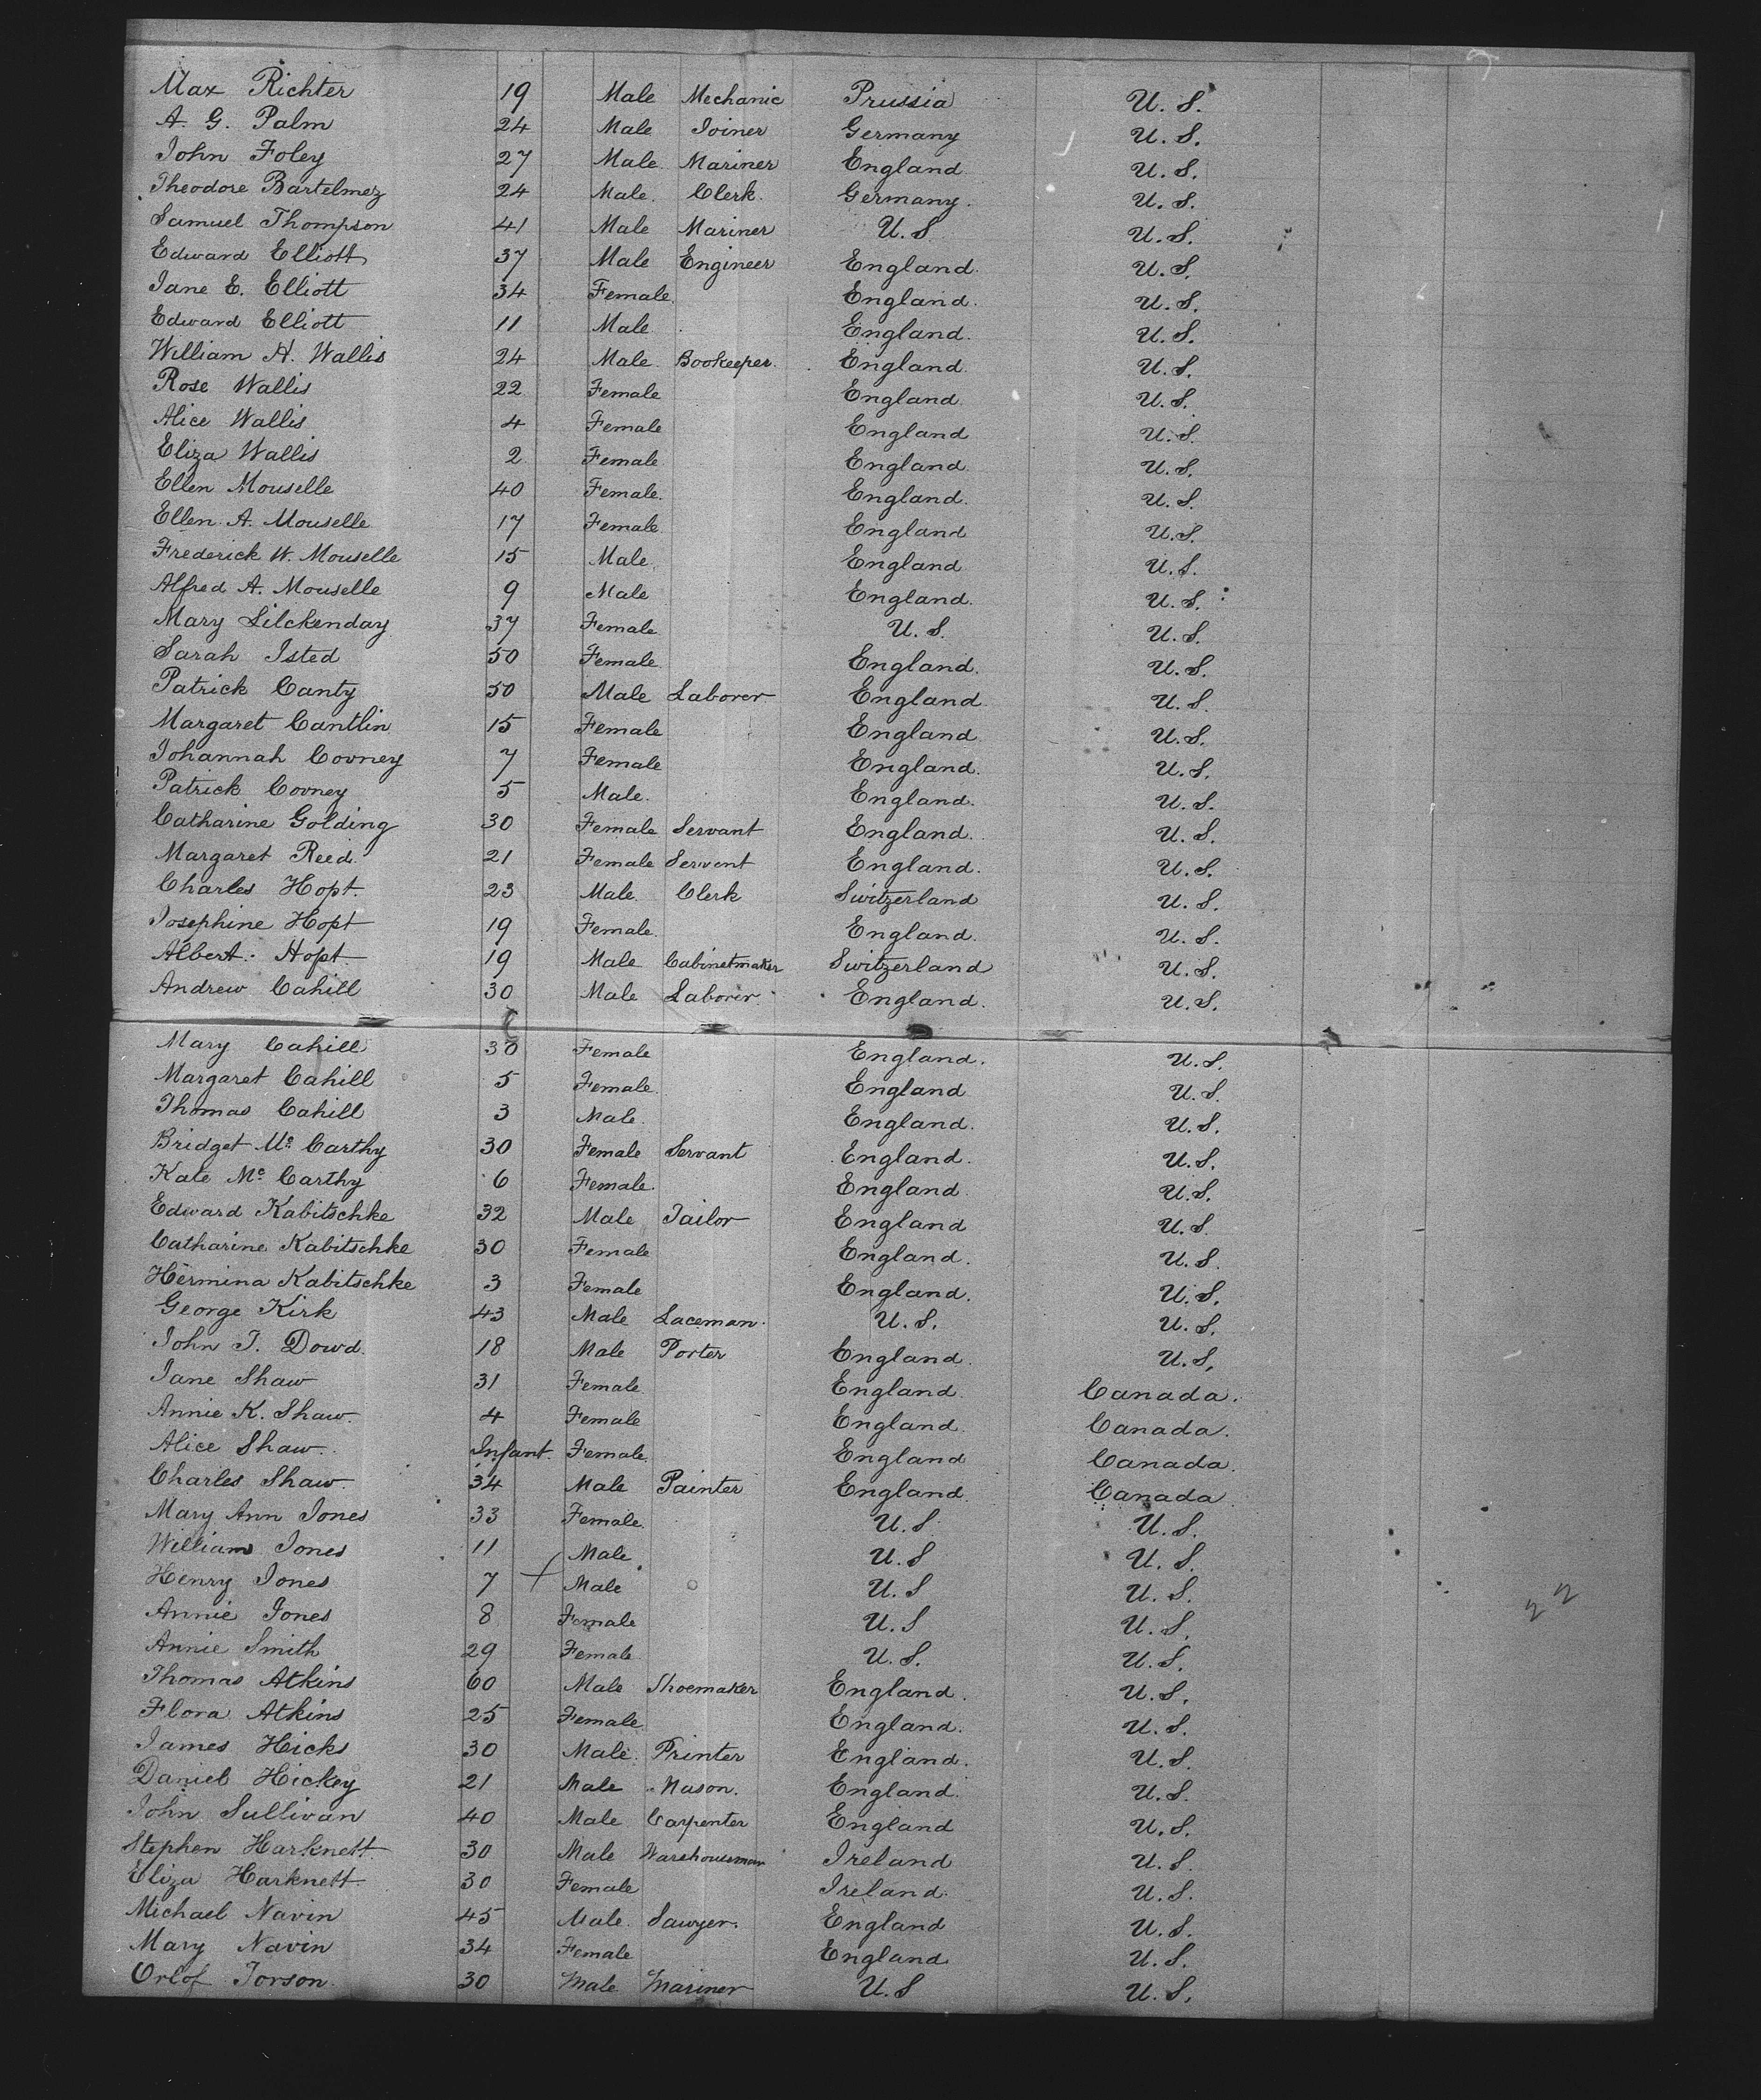 Max Richter 19 Male Mechanic Prussia U. S.
A. G. Palm 24 Male Joiner Germany U. S.
John Foley 27 Male Mariner England U. S.
Theodore Bartelmez 24 Male. Clerk. Germany. U. S.
Samuel Thompson 41 Male Mariner U. S U. S.
Edward Elliott 37 Male Engineer England. U. S.
Jane E. Elliott 34 Female. England. U. S.
Edward Elliott 11 Male England. U. S.
William H. Wallis 24 Male. Bookeeper. England. U. S.
Rose Wallis 22 Female England. U. S.
Alice Wallis 4 Female England U. S.
Eliza Wallis 2 Female England U. S.
Ellen Mouselle 40 Female. England. U. S.
Ellen A. Mouselle 17 Female England U. S.
Frederick W. Mouselle 15 Male England U. S.
Alfred A. Mouselle 9 Male England. U. S.
Mary Lilckenday 37 Female U. S. U. S.
Sarah Isted 50 Female England. U. S.
Patrick Canty 50 Male Laborer England U. S.
Margaret Cantlin 15 Female England U. S.
Johannah Covney 7 Female England. U. S.
Patrick Covney 5 Male. England. U. S.
Catharine Golding 30 Female Servant England. U. S.
Margaret Reed. 21 Female Servent England. U. S.
Charles Hopt. 23 Male Clerk Switzerland U. S.
Josephine Hopt 19 Female. England. U. S.
Albert Hopt 19 Male Cabinetmaker Switzerland U. S.
Andrew Cahill 30 Male Laborer. England. U. S.
Mary Cahill 30 Female England. U. S.
Margaret Cahill 5 Female. England U. S.
Thomas Cahill 3 Male. England. U. S.
Bridget Mc Carthy 30 Female Servant England. U. S.
Kate Mc Carthy 6 Female. England U. S.
Edward Kabitschke 32 Male Tailor England U. S.
Catharine Kabitschke 30 Female England. U. S.
Hermina Kabitschke 3 Female England. U. S.
George Kirk 43 Male Laceman. U. S. U. S.
John T. Dowd. 18 Male Porter England. U. S.
Jane Shaw 31 Female England. Canada.
Annie K. Shaw. 4 Female England. Canada.
Alice Shaw. Infant. Female. England Canada.
Charles Shaw. 34 Male Painter England. Canada.
Mary Ann Jones 33 Female. U. S. U. S.
William Jones 11 Male U. S U. S.
Henry Jones 7 Male U. S U. S.
Annie Jones 8 Female U. S U. S.
Annie Smith 29 Female U. S. U. S.
Thomas Atkins 60 Male Shoemaker England. U. S.
Flora Atkins 25 Female England. U. S.
James Hicks 30 Male. Printer England. U. S.
Daniel Hickey 21 Male Mason. England. U. S.
John Sullivan 40 Male Carpenter England U. S.
Stephen Harknett 30 Male Warehouseman Ireland U. S.
Eliza Harknett 30 Female Ireland. U. S.
Michael Navin 45 Male. Sawyer. England U. S.
Mary Navin 34 Female England U. S.
Orlof Torson. 30 Male Mariner U. S U. S.